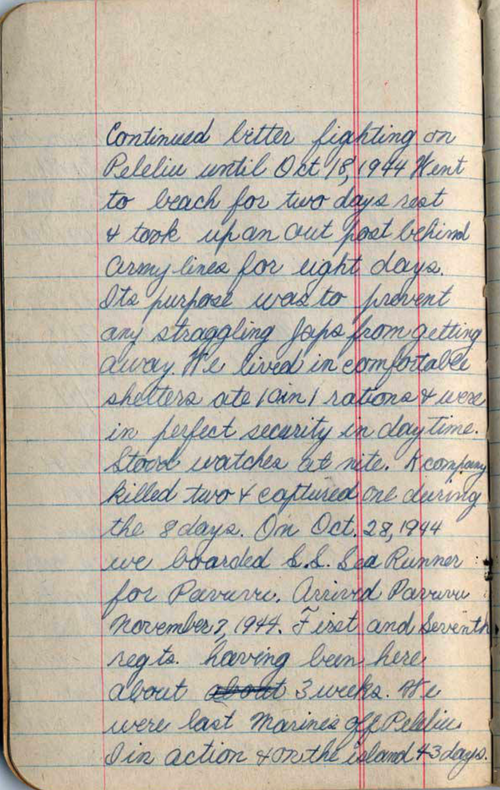 Continued bitter fighting on
Peleliu until Oct 18, 1944 Went
to beach for two days rest
& took up an out post behind
army lines for eight days.
Its purpose was to prevent
any straggling Japs from getting
away. We lived in comfortable
shelters ate 10 in 1 rations & were
in perfect security in daytime.
Stood watches at nite. K company
killed two & captured one during
the 8 days. On Oct. 28, 1944
we boarded S.S. Sea Runner
for Pavuvu. Arrived Pavuvu
November 7, 1944. First and Seventh
regts. having been here
about about 3 weeks. We
were last Marines off Peleliu
I in action & on the island 43 days.